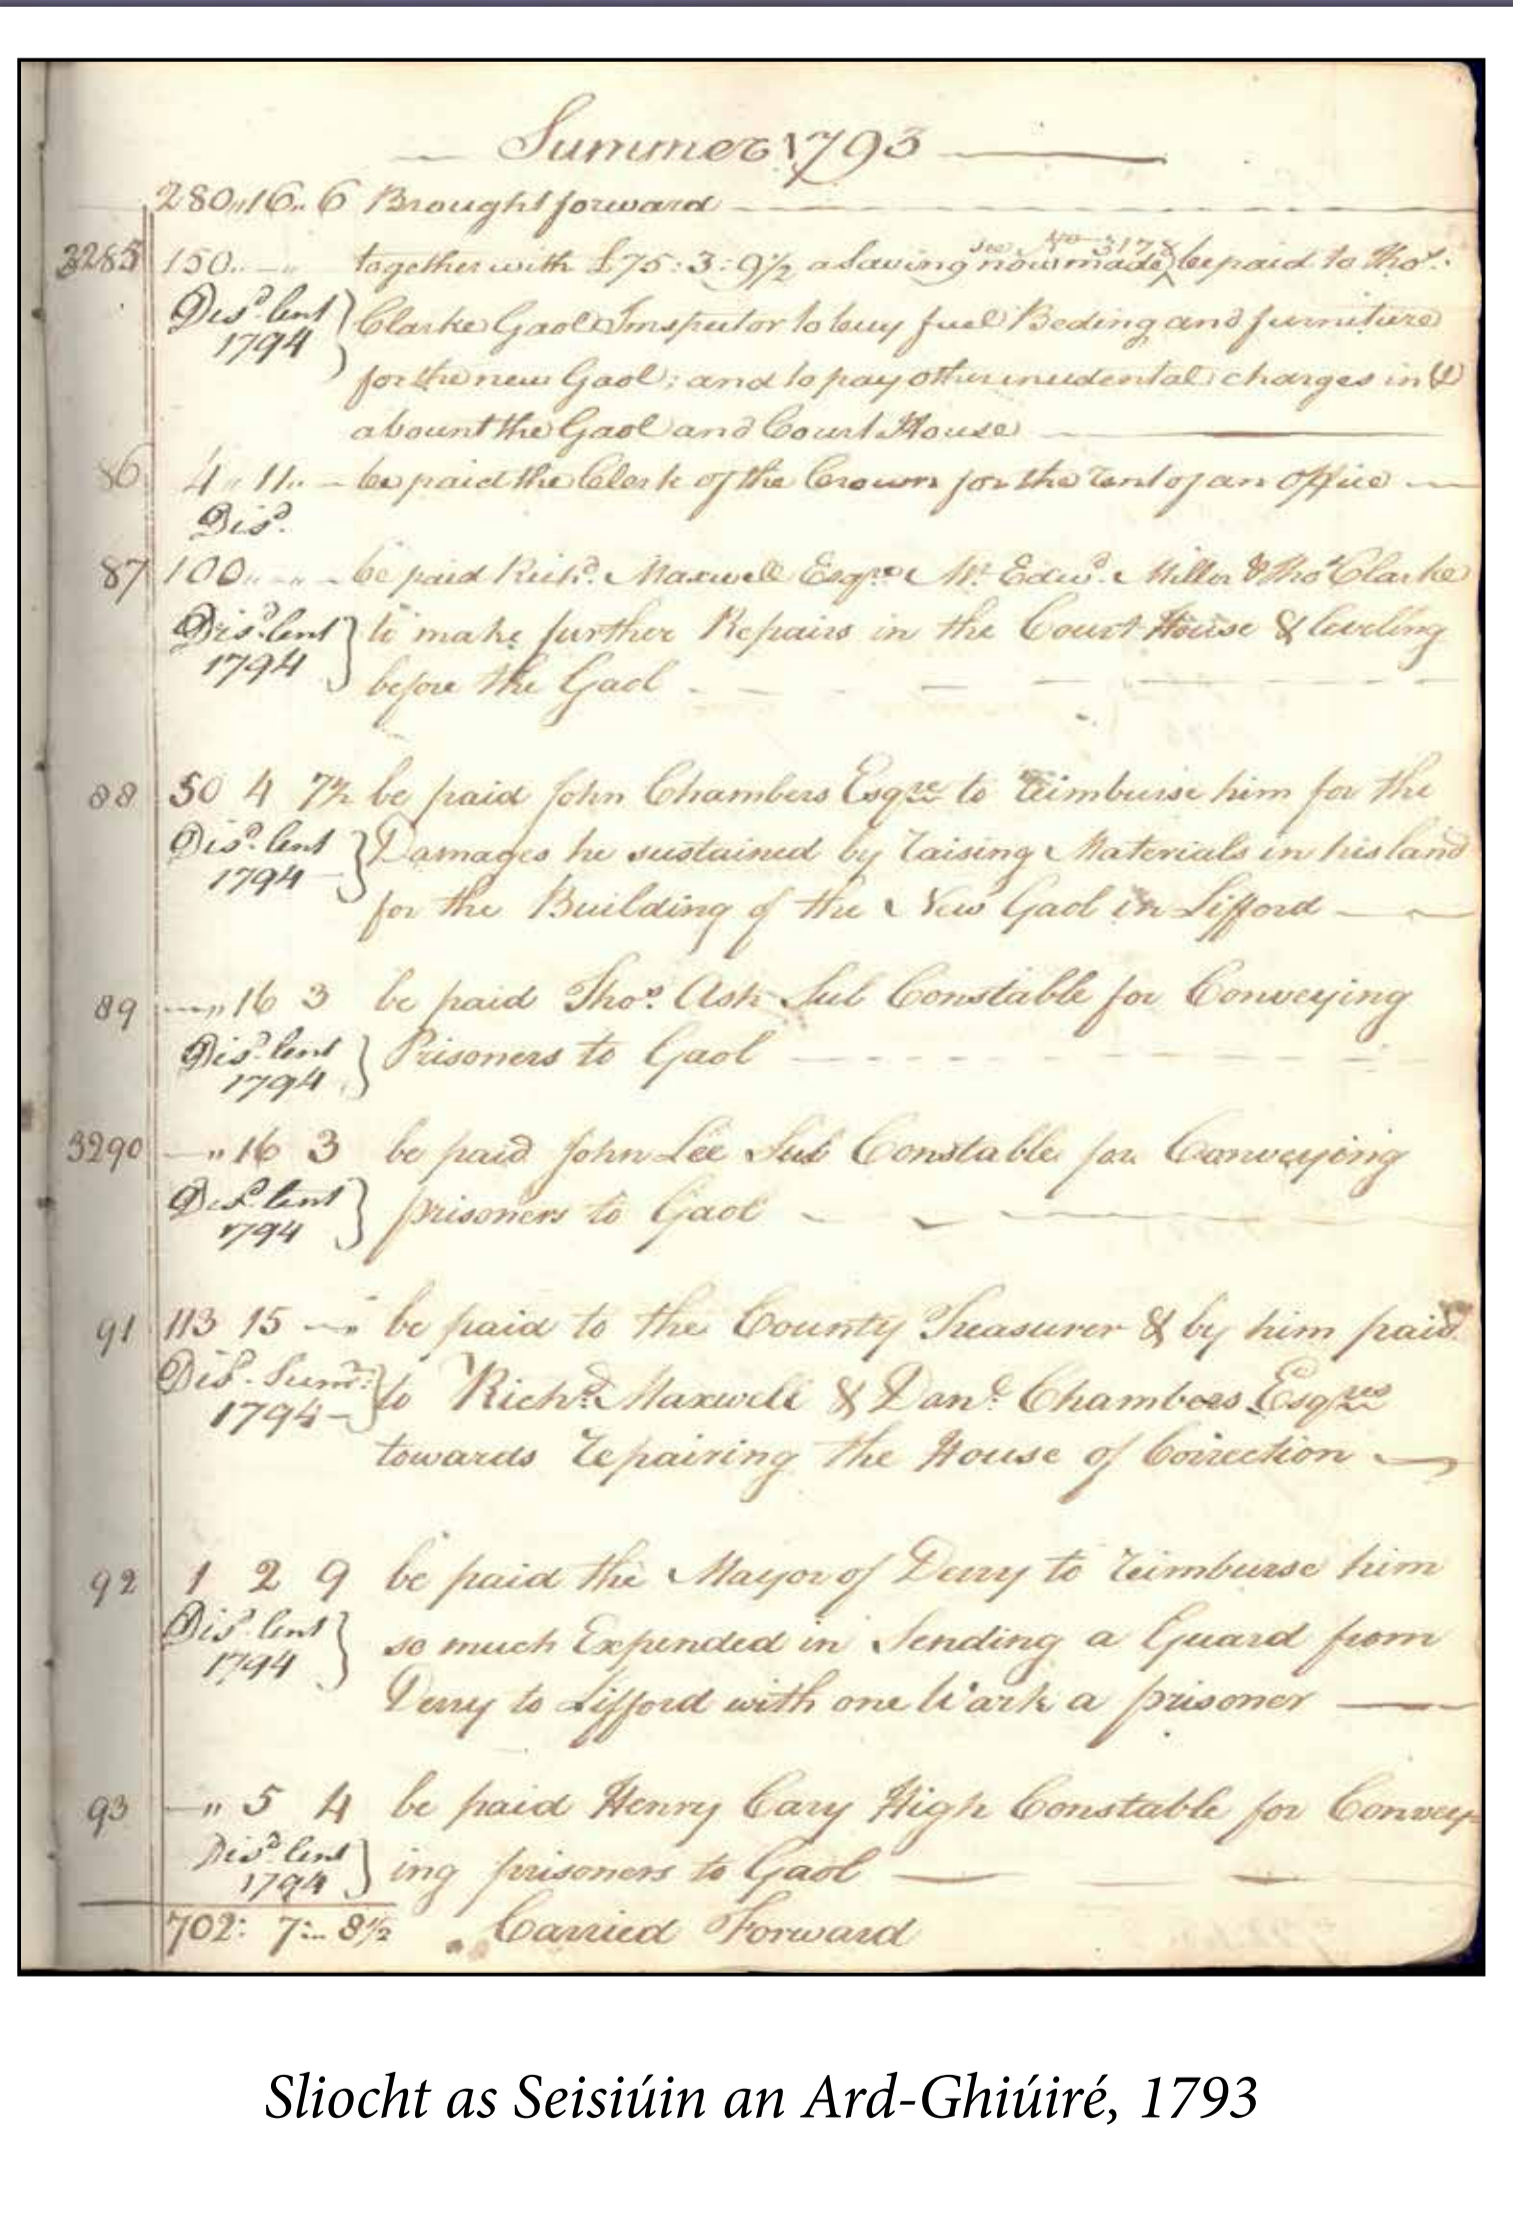 Summer 1793
280,,16,,6 Brought forward
see No 3178
3285 150,,-,, together with £75:3:9½ a Saving now made be paid to Thos.
Disd. lent Clarke Gaol Inspector to buy fuel Beding and furniture
1794
for the new Gaol: and to pay other incidental charges in &
abount the Gaol and Court House
86 4,,11,,- be paid the Clerk of the Crown for the rent of an Office
Disd.
87 100,,-,,- be paid Richd. Maxwell Esqre Mr. Edwd. Miller & Thos Clarke
Disd. lent to make further Repairs in the Court House & leveling
1794
before the Gaol
88 50 4 7½ be paid John Chambers Esqre to reimburse him for the
Disd. lent Damages he sustained by raising Materials in his land
1794
for the Building of the New Gaol in Lifford
89 -,,16 3 be paid Thos. Ash Sub Constable for Conveying
Disd. lent Prisoners to Gaol
1794
3290 -,,16 3 be paid John Lee Sub Constable for Conveying
Disd. lent prisoners to Gaol
1794
91 113 15 -,, be paid to the County Treasurer & by him paid
Disd. Sumr. to Richd. Maxwell & Danl. Chambers Esqres
1794
towards repairing the House of Correction
92 1 2 9 be paid the Mayor of Derry to reimburse him
Disd. lent so much Expended in Sending a Guard from
1794
Derry to Lifford with one a prisoner
93 -,, 5 4 be paid Henry Cary High Constable for Convey
Disd. lent ing prisoners to Gaol
1794
702: 7:.. 8½ Carried Forward
Sliocht as Seisiúin an Ard-Ghiúiré, 1793